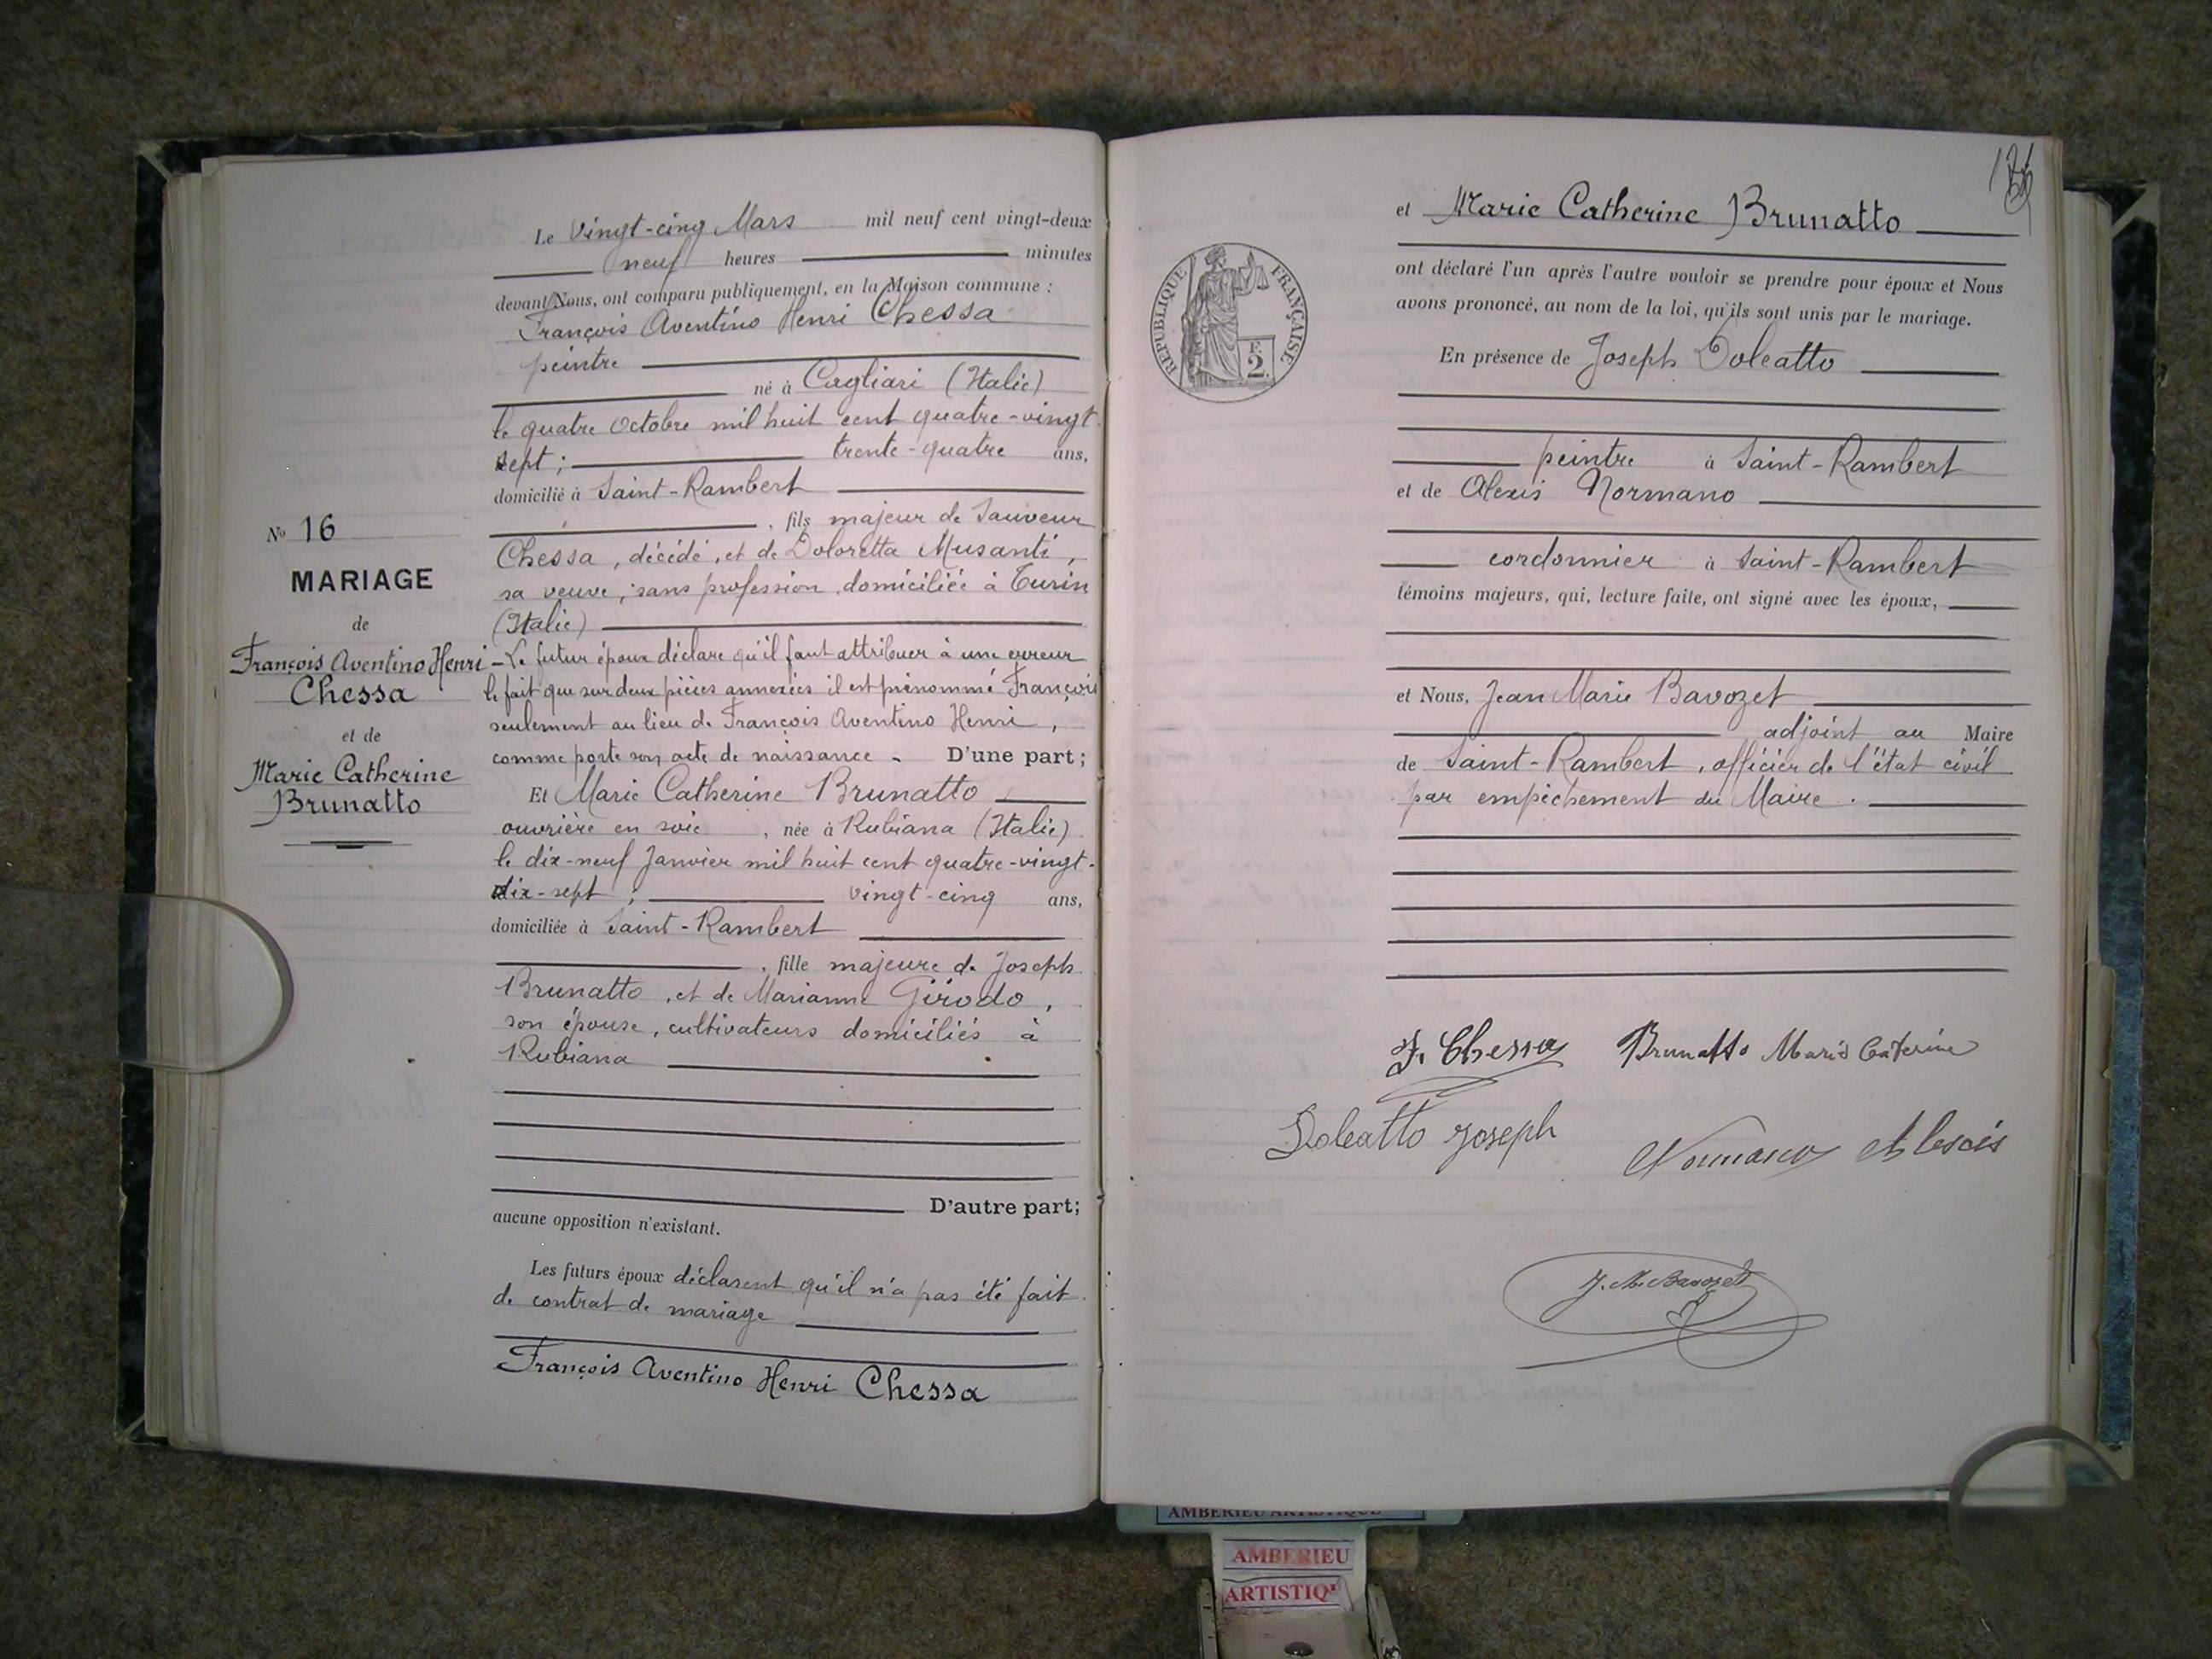 No 16
MARIAGE
de
François Aventino Henri
Chessa
et de
Marie Catherine
Brunatto
Le Vingt-cinq Mars mil neuf cent vingt-deux
neuf heures minutes
devant Nous, ont comparu publiquement, en la Maison commune :
François Aventino Henri Chessa
peintre
né à Cagliari (Italie)
le quatre Octobre mil huit cent quatre-vingt
sept ; trente-quatre ans,
domicilié à Saint-Rambert
, fils majeur de Sauveur
Chessa, décédé, et de Doloretta Musanti,
sa veuve, sans profession, domiciliée à Turin
(Italie)
- Le futur époux déclare qu'il faut attribuer à une erreur
le fait que sur deux pièces annexées il est prénommé François
seulement au lieu de François Aventino Henri,
comme porte son acte de naissance - D'une part;
Et Marie Catherine Brunatto
ouvrière en soie, née à Rubiana (Italie)
le dix-neuf Janvier mil huit cent quatre-vingt-
dix-sept ; vingt-cinq ans,
domiciliée à Saint-Rambert
, fille majeure de Joseph
Brunatto, et de Marianne Girodo,
son épouse, cultivateurs domiciliés à
Rubiana
D'autre part;
aucune opposition n'existant.
Les futurs époux déclarent qu'il n'a pas été fait
de contrat de mariage
François Aventino Henri Chessa
et Marie Catherine Brunatto
ont déclaré l'un après l'autre vouloir se prendre pour époux et Nous
avons prononcé, au nom de la loi, qu'ils sont unis par le mariage.
REPUBLIQUE FRANÇAISE
2
En présence de Joseph Doleatto
peintre à Saint-Rambert
et de Alexis Normano
cordonnier à Saint-Rambert
témoins majeurs, qui, lecture faite, ont signé avec les époux,
et Nous, Jean Marie Bavozet
adjoint au Maire
de Saint-Rambert, officier de l'état civil
par empêchement du Maire.
F. Chessa Brunatto Maria Caterina
Doleatto Joseph
Normano Alescis
J. M. Bavozet
AMBERIEU ARTISTIQUE
AMBERIEU
ARTISTIQ